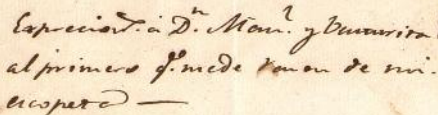 Expreciones. à Dn. Manl. y Venturita
al primero qe. me de razon de mi
escopeta —